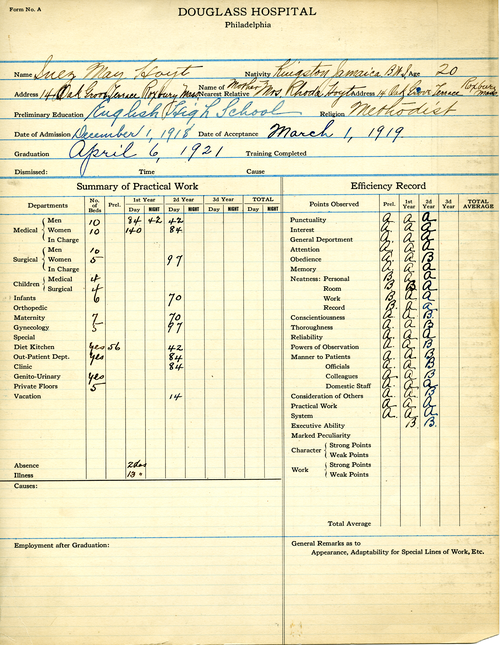 Form No. A
DOUGLASS HOSPITAL
Philadelphia
Name Inez May Hoyt Nativity Kingston Jamaica B.W.I. Age 20
Address 14 Oak Grove Terrace Roxbury Mass Name of Nearest Relative Mother Mrs. Rhoda Hoyt Address 14 Oak Grove Terrace Roxbury Mass
Preliminary Education English High School Religion Methodist
Date of Admission December 1, 1918 Date of Acceptance March 1, 1919
Graduation April 6, 1921 Training Completed
Dismissed: Time Cause
Summary of Practical Work
Departments No. of Beds Prel. 1st Year 2d Year 3d Year TOTAL
Day NIGHT Day NIGHT Day NIGHT Day NIGHT
Medical Men 10 84 42 42
Women 10 140 84
In Charge
Surgical Men 10
Women 5 97
In Charge
Children Medical 4
Surgical 4
Infants 6 70
Orthopedic
Maternity 7 70
Gynecology 5 97
Special
Diet Kitchen Yes 56 42
Out-Patient Dept. Yes 84
Clinic 84
Genito-Urinary Yes
Private Floors 5
Vacation 14
Absence 2 das
Illness 13 "
Causes:
Employment after Graduation:
Efficiency Record
Points Observed Prel. 1st Year 2d Year 3d Year TOTAL AVERAGE
Punctuality A A A
Interest A A A
General Department A A A
Attention A A A
Obedience A A B
Memory A A A
Neatness: Personal B A A
Room B B A
Work B A A
Record B A A
Conscientiousness A A B
Thoroughness A A B
Reliability A A A
Powers of Observation A A B
Manner to Patients A A B
Officials A A B
Colleagues A A B
Domestic Staff A A A
Consideration of Others A A B
Practical Work A A A
System A A A
Executive Ability B B
Marked Peculiarity
Character Strong Points
Weak Points
Work Strong Points
Weak Points
Total Average
General Remarks as to
Appearance, Adaptability for Special Lines of Work, Etc.